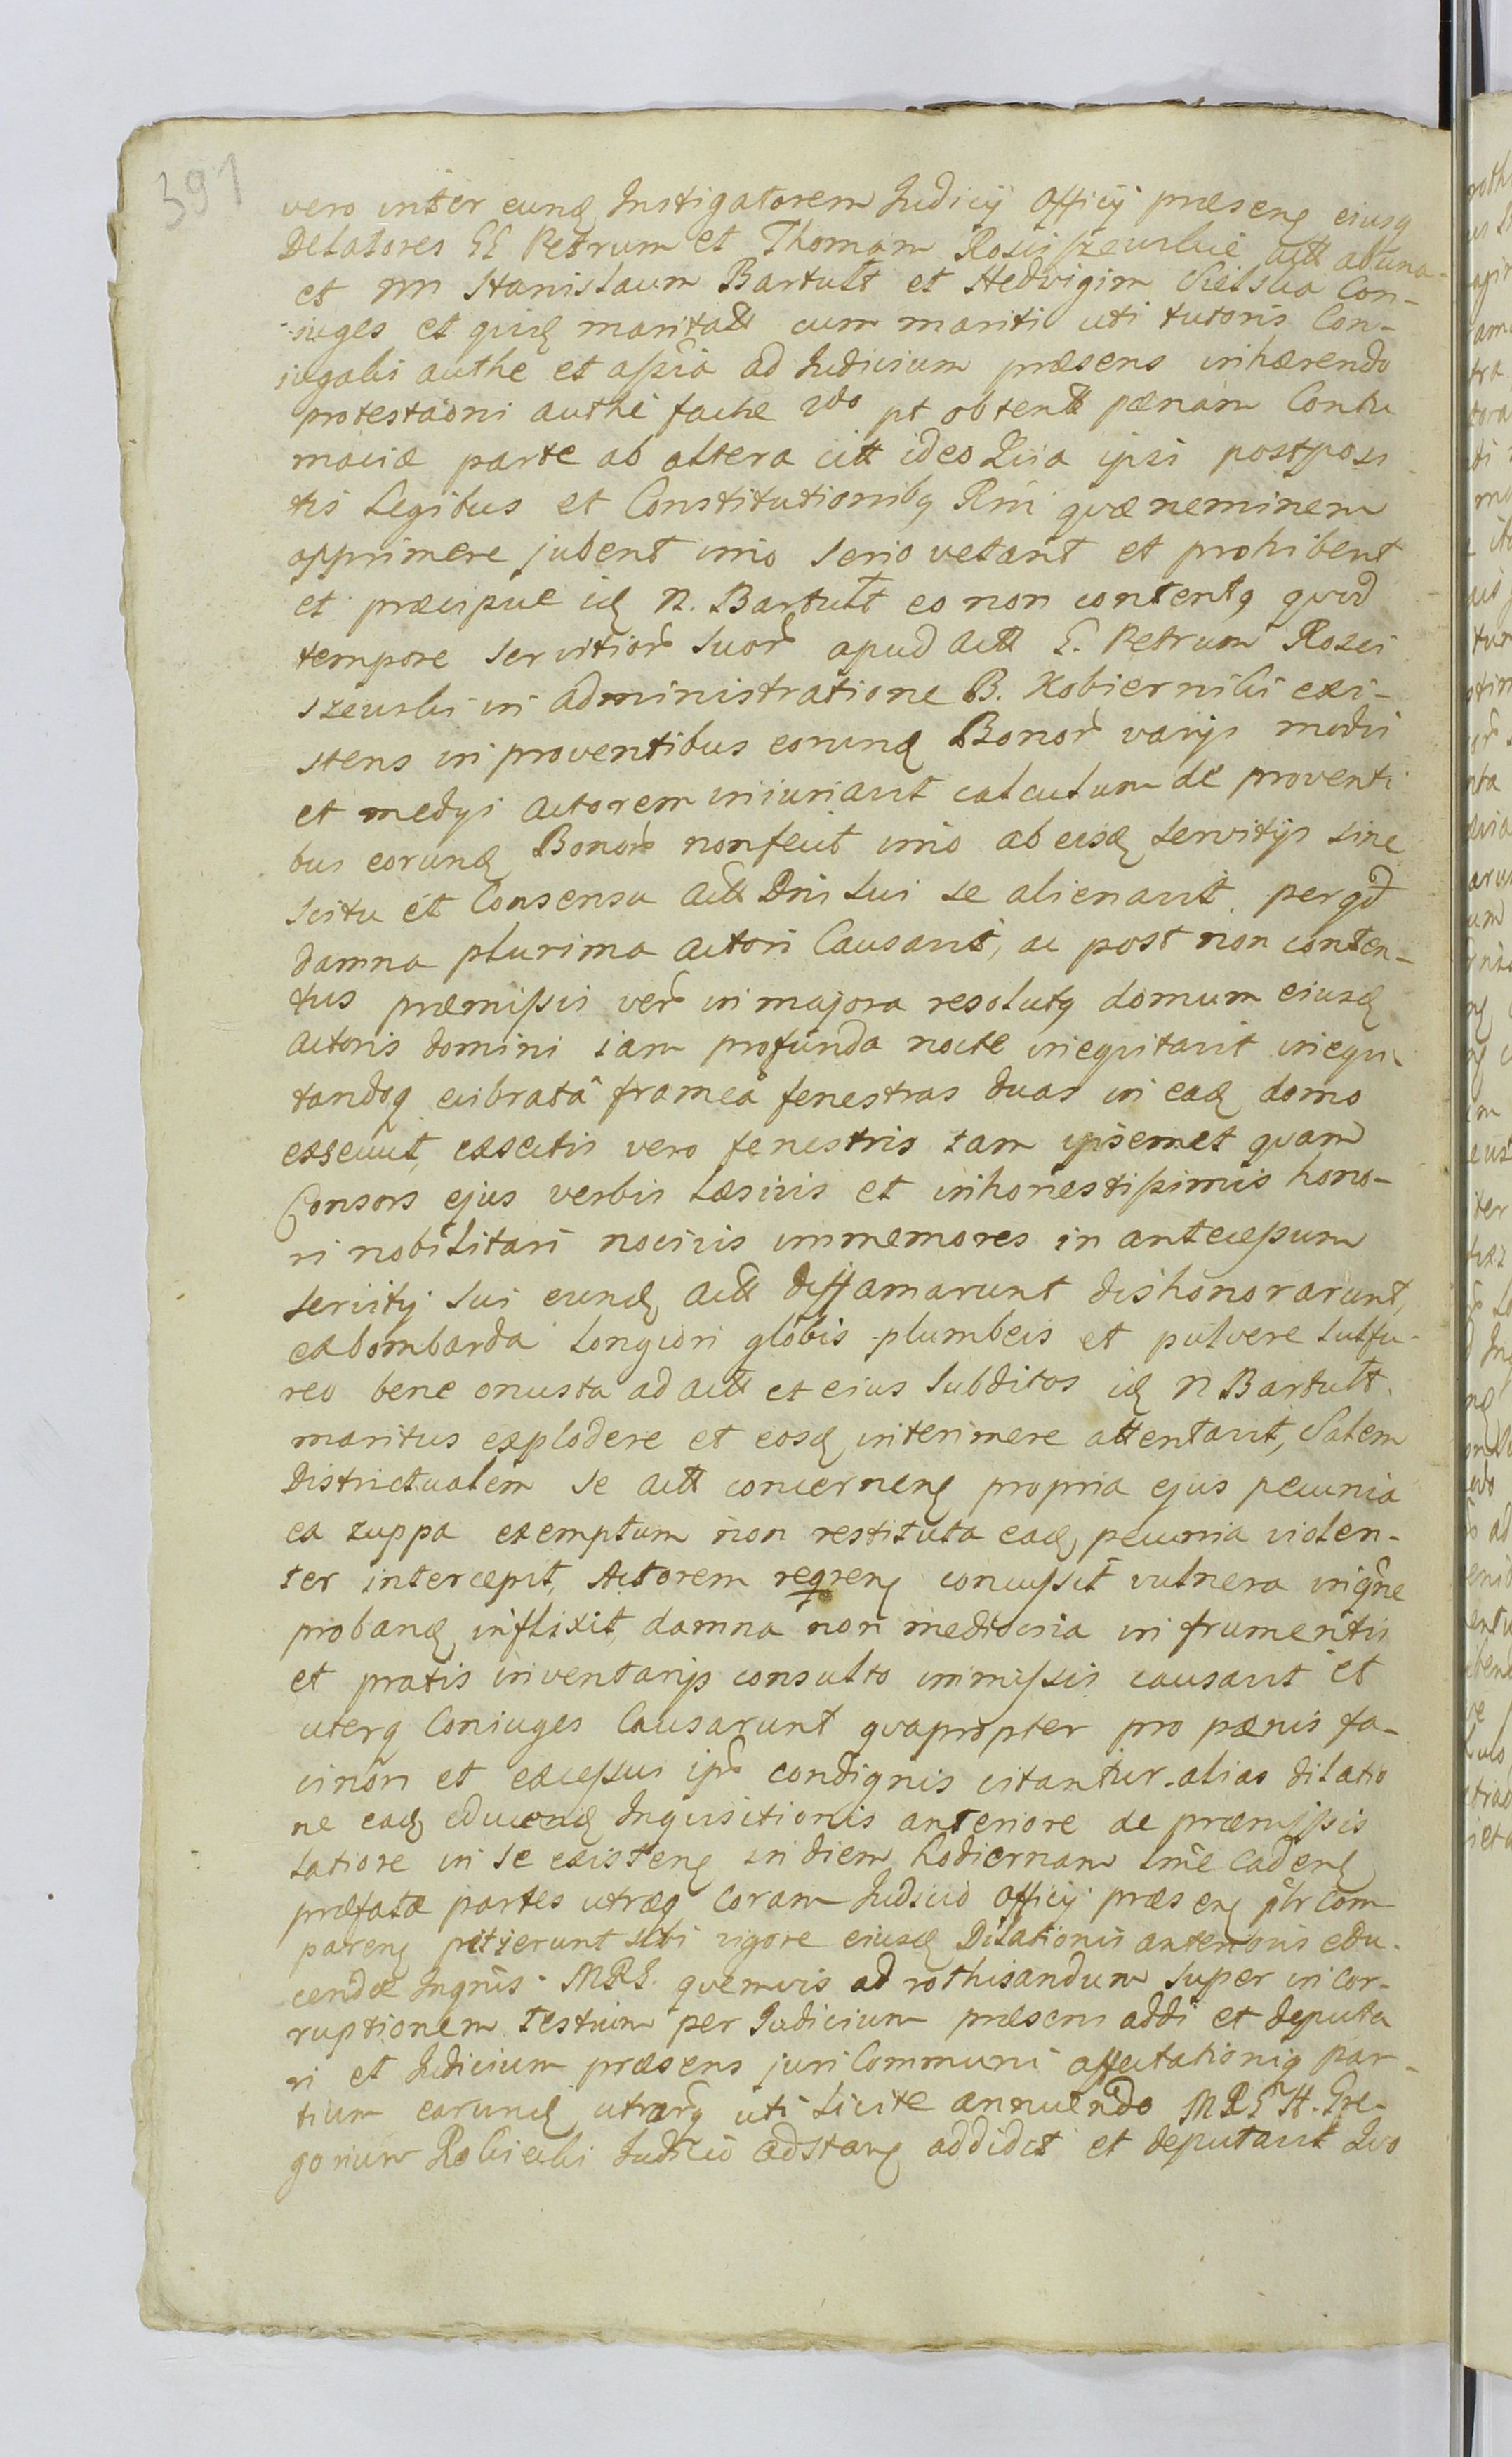 391
vero inter eund Instigatorem Judicij Officij præsens eiusq
Delatores GG Petrum et Thomam Rosciszewskie actt ab una
et NN Stanislaum Bartult et Hedvigim Con-
iuges et quid maritatt cum mariti uti tutoris Con-
iugalis authe et assia ad Judicium præsens inhærendo
protestaoni authe factæ 2do pt obtentt pænam Contu
maciæ parte ab altera citt ideo Quia ipsi postposi
tis Legibus et Constitutionibq Rni qvæ neminem
opprimere jubent imo serio vetant et prohibent
et præcipue id N. Bartult eo non contentq qvod
tempore servitior suor apud actt G. Petrum Rosci
szewski in administratione B. Kobierniki exi-
stens in proventibus eorund Bonor varijs modis
et medijs actorem iniuriavit calculum de proventi
bus eorund Bonor non fecit imo ab eisd servitijs sine
scitu et Consensu actt Dni sui se alienavit, per qd
damna plurima actori Causavit, ac post non conten-
tus præmissis ver in majora resolutq domum eiusd
actoris domini iam profunda nocte ineqvitavit ineqvi
tandoq evibratâ frameâ fenestras duas in ead domo
exsecuit, exsectis vero fenestris tam ipsemet qvam
Consors ejus verbis læsivis et inhonestissimis hono-
ri nobilitari nocivis immemores in antecessum
servitij sui eund actt diffamarunt dishonorarunt,
ex bombarda longiori globis plumbeis et pulvere sulfu-
reo bene onusta ad actt et eius subditos id N Bartult
maritus explodere et eosd interimere attentavit, Salem
Districtualem se actt concernens propria ejus pecunia
ex zuppa exemptum non restituta ead pecunia violen-
ter intercepit, Actorem reqrens concussit vulnera inqne
proband inflixit, damna non mediocria in frumentis
et pratis inventarijs consulto immissis causavit et
uterq Coniuges Causarunt qvapropter pro pænis fa-
cinori et excessui ipr condignis citantur. alias dilatio
ne ead educend Inquisitionis anteriore de præmissis
latiore in se existens in diem hodiernam lme cadens
præfatæ partes utræq coram Judicio Officij præsens plr com
parens petierunt sibi vigore eiusd Dilationis anterioris edu-
cendæ Inqnis. MRG. qvemvis ad rothisandum super incor-
ruptionem Testium per Judicium præsens addi et deputa
ri et Judicium præsens juri Communi affectationiq par-
tium earund utrarq uti licite annuendo MRGH. Gre-
gorium Judicio adstans addidit et deputavit Qvo